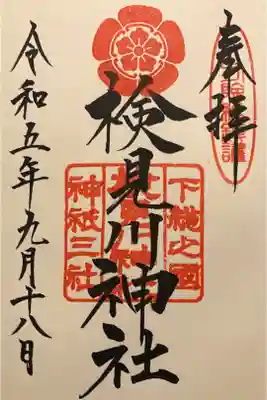 奉拝
下總之國
検見川神社
神祇三社
令和五年九月十八日